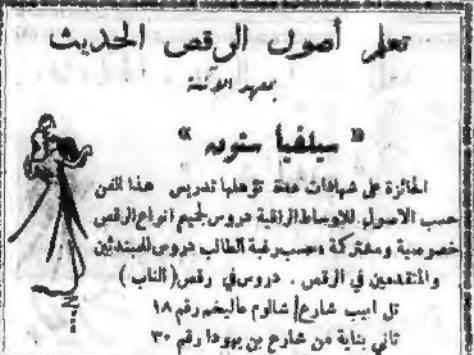 تعلم أصول الرقص الحديث
بمعهد الآنسة
« سيلفيا ستون »
الحائزة على شهادات عدة تؤهلها تدريس هذا الفن
حسب الاصول للاوساط الراقية دروس لجميع انواع الرقص
خصوصية ومشتركة وحسب رغبة الطالب دروس للمبتدئين
والمتقدمين في الرقص . دروس في رقص (التاب)
تل ابيب شارع شالوم عاليخم رقم ١٨
ثاني بناية من شارع بن يهودا رقم ٣٠